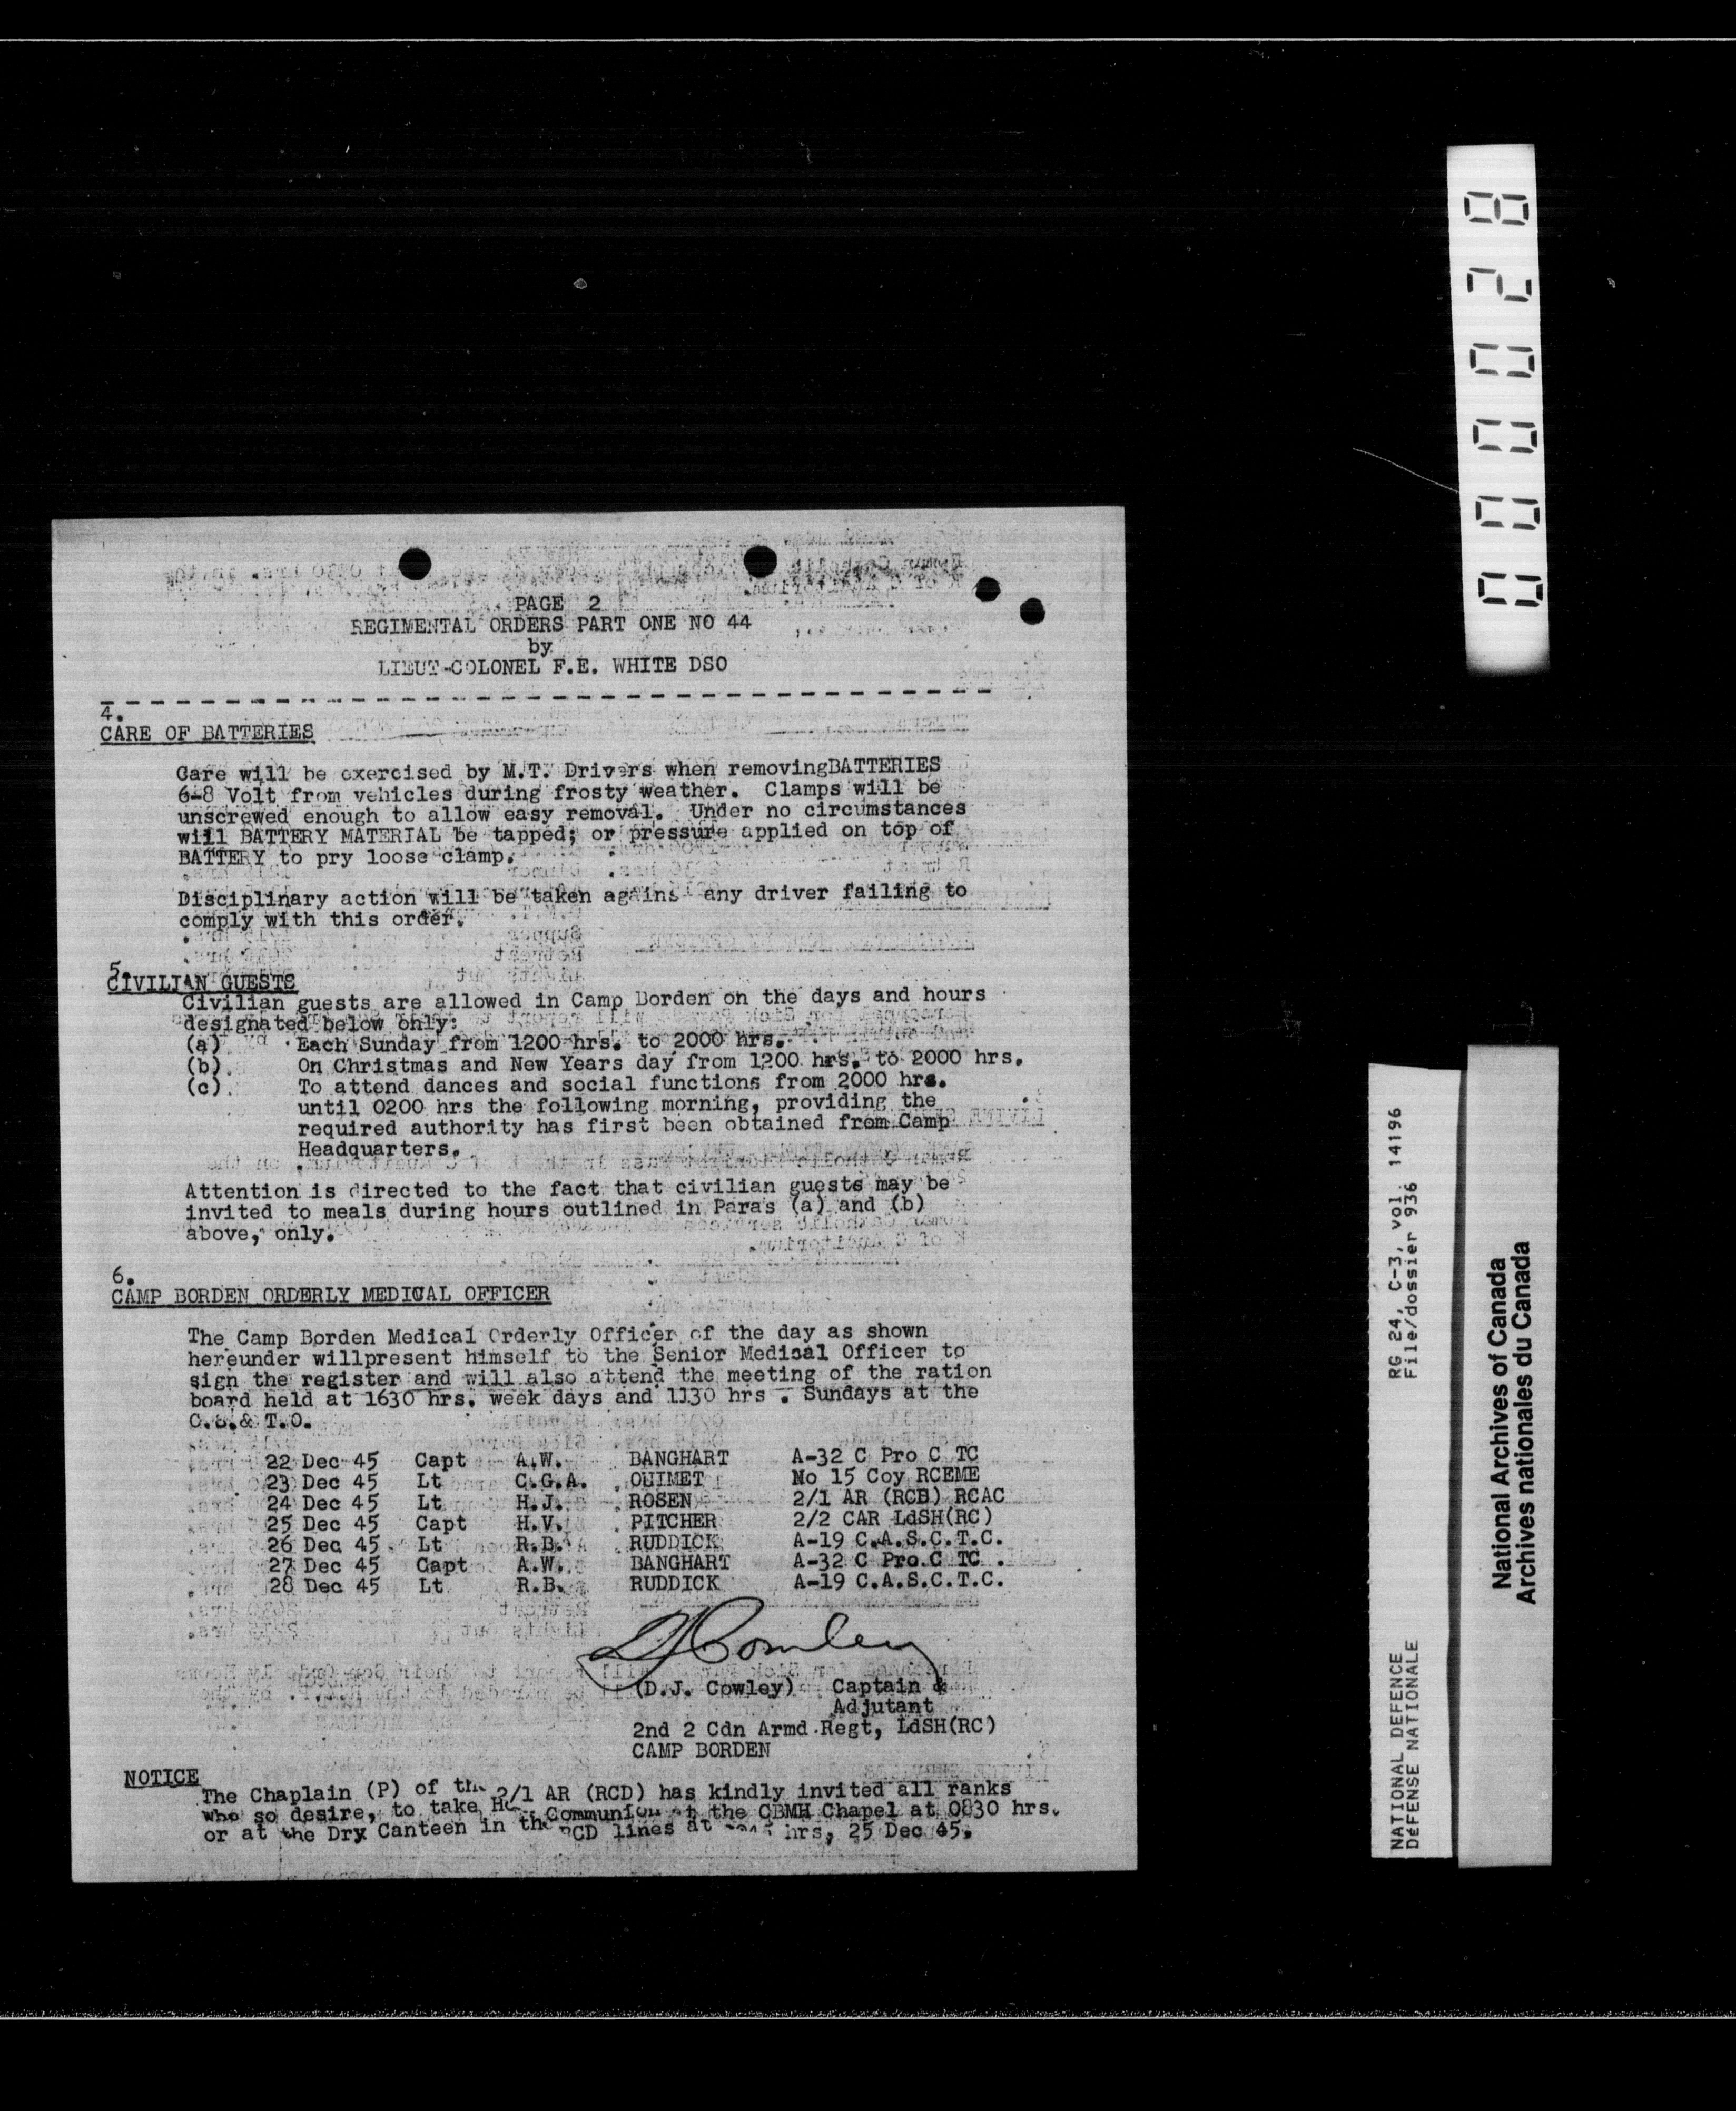 PAGE 2
REGIMENTAL ORDERS PART ONE NO 44
by
LIEUT-COLONEL F.E. WHITE DSO
4.
CARE OF BATTERIES
Care will be exercised by M.T. Drivers when removingBATTERIES
6-8 Volt from vehicles during frosty weather. Clamps will be
unscrewed enough to allow easy removal. Under no circumstances
will BATTERY MATERIAL be tapped; or pressure applied on top of
BATTERY to pry loose clamp.
Disciplinary action will be taken agains any driver failing to
comply with this order.
5.
CIVILIAN GUESTS
Civilian guests are allowed in Camp Borden on the days and hours
designated below only:
(a) Each Sunday from 1200 hrs. to 2000 hrs.
(b) On Christmas and New Years day from 1200 hrs. to 2000 hrs.
(c) To attend dances and social functions from 2000 hrs.
until 0200 hrs the following morning, providing the
required authority has first been obtained from Camp
Headquarters.
Attention is directed to the fact that civilian guests may be
invited to meals during hours outlined in Paras (a) and (b)
above, only.
6.
CAMP BORDEN ORDERLY MEDICAL OFFICER
The Camp Borden Medical Orderly Officer of the day as shown
hereunder willpresent himself to the Senior Medical Officer to
sign the register and will also attend the meeting of the ration
board held at 1630 hrs. week days and 1130 hrs . Sundays at the
C.S.& T.O.
22 Dec 45 Capt A.W. BANGHART A-32 C Pro C TC
23 Dec 45 Lt C.G.A. OUIMET No 15 Coy RCEME
24 Dec 45 Lt H.J. ROSEN 2/1 AR (RCD) RCAC
25 Dec 45 Capt H.V. PITCHER 2/2 CAR LdSH(RC)
26 Dec 45 Lt R.B. RUDDICK A-19 C.A.S.C.T.C.
27 Dec 45 Capt A.W. BANGHART A-32 C Pro C TC .
28 Dec 45 Lt R.B. RUDDICK A-19 C.A.S.C.T.C.
DJ Cowley
(D.J. Cowley) Captain &
Adjutant
2nd 2 Cdn Armd Regt, LdSH(RC)
CAMP BORDEN
NOTICE
The Chaplain (P) of the 2/1 AR (RCD) has kindly invited all ranks
who so desire, to take Communion at the CBMH Chapel at 0830 hrs.
or at the Dry Canteen in the RCD lines at hrs, 25 Dec 45.
000028
RG 24, C-3, vol. 14196
File/dossier 936
NATIONAL DEFENCE
DÉFENSE NATIONALE
National Archives of Canada
Archives nationales du Canada